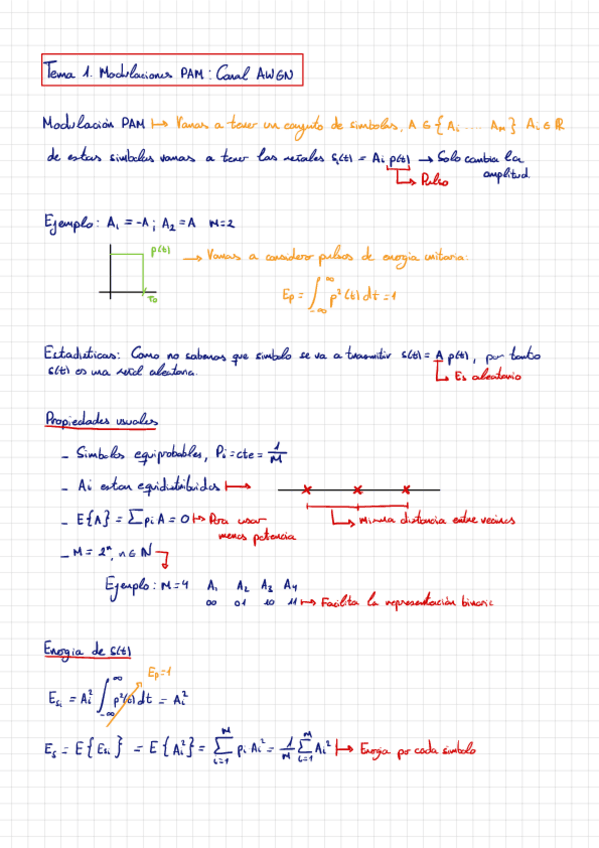 Tema 1. Modulaciones PAM: Canal AWGN
Modulación PAM ↦ Vamos a tener un conjunto de simbolos, A ∈ { A₁ ..... Aₘ } Aᵢ ∈ ℝ
de estos simbolos vamos a tener las señales sᵢ(t) = Aᵢ p(t) → Solo cambia la
amplitud.
Pulso
Ejemplo: A₁ = -A ; A₂ = A M=2
p(t)
→ Vamos a considerar pulsos de energia unitaria:
T₀
Ep = ∫_{-∞}^{∞} p²(t) dt = 1
Estadisticas: Como no sabemos que simbolo se va a transmitir s(t) = A p(t), por tanto
s(t) es una señal aleatoria.
Es aleatorio
Propiedades usuales
- Simbolos equiprobables, Pᵢ = cte = 1/M
- Aᵢ estan equidistribuidos ↦
- E{A} = ∑ pᵢ A = 0 ↦ Para usar
menos potencia
Misma distancia entre vecinos
- M = 2ⁿ, n ∈ ℕ
Ejemplo: M=4 A₁ A₂ A₃ A₄
00 01 10 11 ↦ Facilita la representación binaria
Energia de s(t)
Ep=1
E_{sᵢ} = Aᵢ² ∫_{-∞}^{∞} p²(t) dt = Aᵢ²
E_s = E{E_{sᵢ}} = E{Aᵢ²} = ∑_{i=1}^{M} pᵢ Aᵢ² = 1/M ∑_{i=1}^{M} Aᵢ² ↦ Energia por cada simbolo